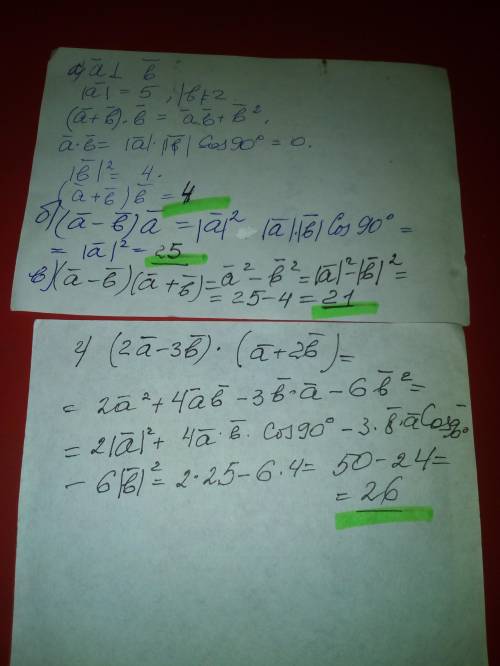 а) a̅ ⊥ b̅
|a̅| = 5, |b|=2
(a̅+b̅)·b̅ = a̅b̅+b̅²,
a̅·b̅= |a̅|·|b̅| Cos90°=0.
|b̅|²= 4.
(a̅+b̅)b̅ = 4
б)(a̅-b̅)a̅ = |a̅|² |a̅|·|b̅|Cos 90°=
= |a̅|²= 25
в)(a̅-b̅)(a̅+b̅)=a̅²-b̅²=|a̅|²-|b̅|²=
= 25-4=21
г) (2a̅-3b̅)·(a̅+2b̅)=
= 2a̅²+4a̅b̅-3b̅·a̅-6b̅²=
=2|a̅|²+ 4a̅·b̅·Cos90°-3·b̅·a̅Cos90°
-6|b̅|²= 2·25-6·4= 50-24=
= 26